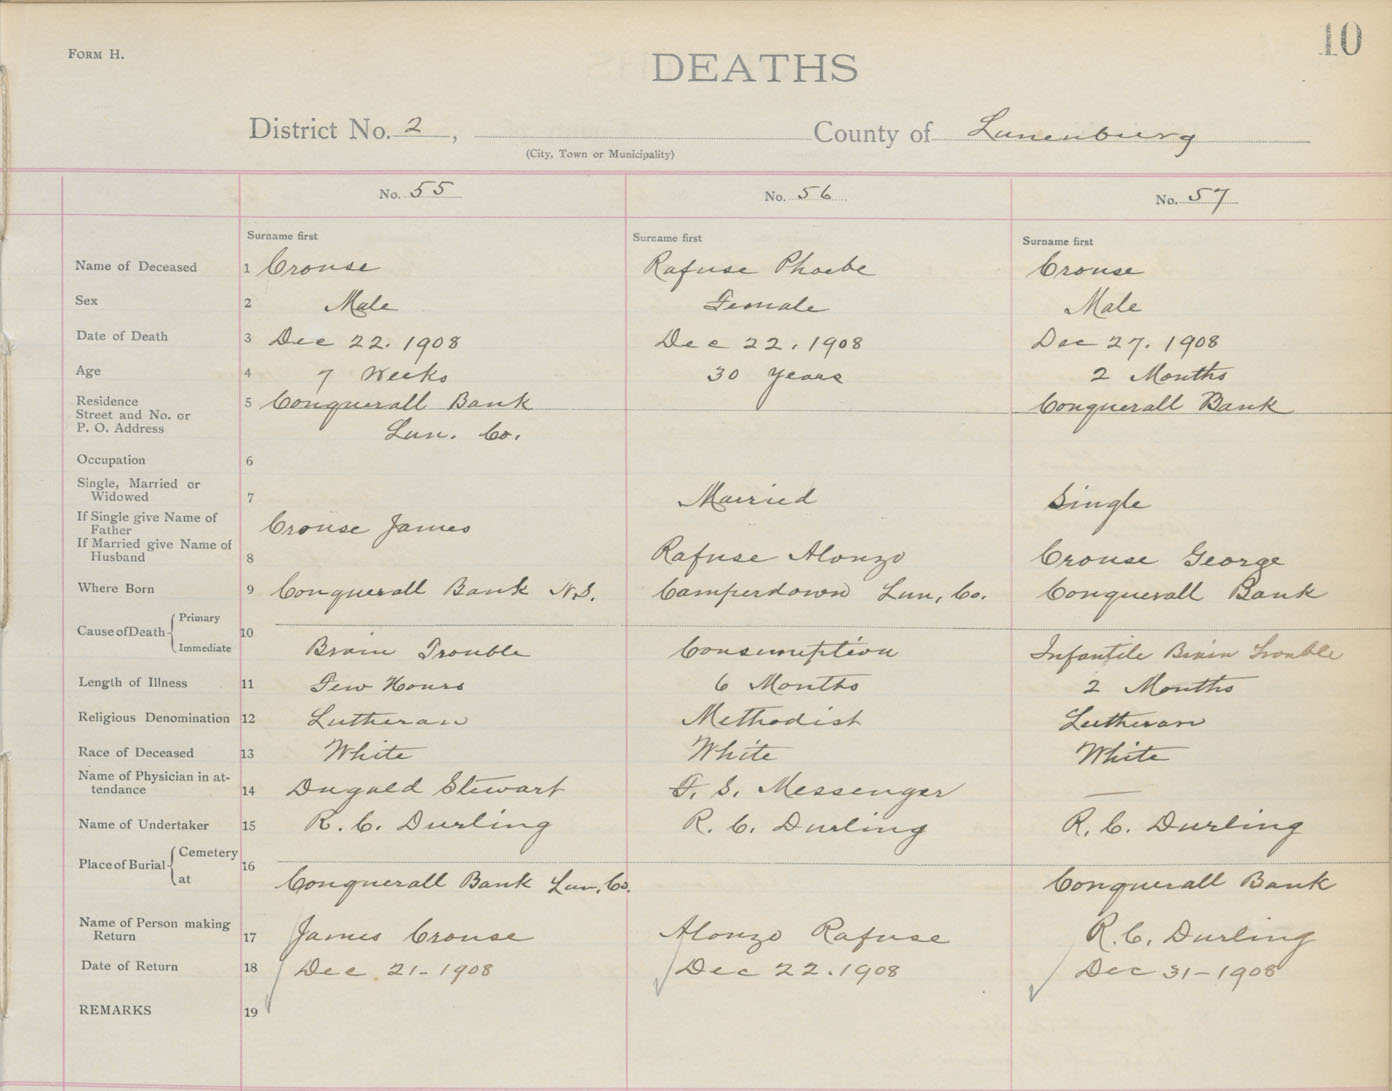 10
FORM H.
DEATHS
District No. 2, County of Lunenburg
(City, Town or Municipality)
No. 55 No. 56 No. 57
Surname first Surname first Surname first
Name of Deceased 1 Crouse Rafuse Phoebe Crouse
Sex 2 Male Female Male
Date of Death 3 Dec 22. 1908 Dec 22. 1908 Dec 27. 1908
Age 4 7 Weeks 30 Years 2 Months
Residence
Street and No. or 5 Conquerall Bank Conquerall Bank
P. O. Address Lun. Co.
Occupation 6
Single, Married or
Widowed 7 Married Single
If Single give Name of
Father Crouse James
If Married give Name of
Husband 8 Rafuse Alonzo Crouse George
Where Born 9 Conquerall Bank N.S. Camperdown Lun. Co. Conquerall Bank
Cause of Death Primary 10
Immediate Brain Trouble Consumption Infantile Brain Trouble
Length of Illness 11 Few Hours 6 Months 2 Months
Religious Denomination 12 Lutheran Methodist Lutheran
Race of Deceased 13 White White White
Name of Physician in at-
tendance 14 Dugald Stewart F. S. Messenger —
Name of Undertaker 15 R. C. Durling R. C. Durling R. C. Durling
Place of Burial Cemetery 16
at Conquerall Bank Lun. Co. Conquerall Bank
Name of Person making
Return 17 James Crouse Alonzo Rafuse R. C. Durling
Date of Return 18 Dec 21-1908 Dec 22. 1908 Dec 31-1908
REMARKS 19